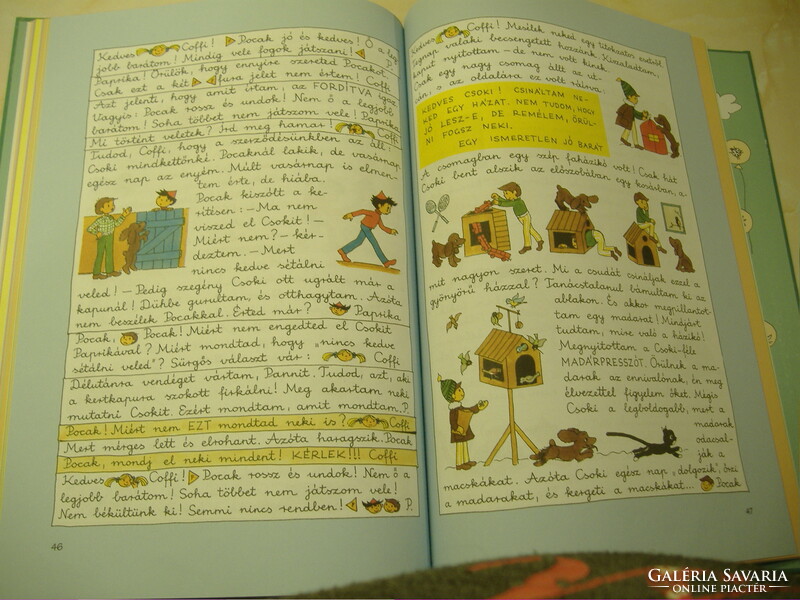 Kedves Coffi! Pocak jó és kedves! Ő a leg-
jobb barátom! Mindig vele fogok játszani! P.
Paprika! Örülök, hogy ennyire szereted Pocakot.
Csak ezt a két fura jelet nem értem! Coffi
Azt jelenti, hogy amit írtam, az FORDÍTVA igaz.
Vagyis: Pocak rossz és undok! Nem ő a legjobb
barátom! Soha többet nem játszom vele! Paprika
Mi történt veletek? Írd meg hamar! Coffi
Tudod, Coffi, hogy a szerződésünkben az áll:
Csoki mindkettőnké. Pocaknál lakik, de vasárnap
egész nap az enyém. Múlt vasárnap is elmen-
tem érte, de hiába.
Pocak kiszólt a ke-
rítésen: – Ma nem
viszed el Csokit! –
Miért nem? – kér-
deztem. – Mert
nincs kedve sétálni
veled! – Pedig szegény Csoki ott ugrált már a
kapunál! Dühbe gurultam, és otthagytam. Azóta
nem beszélek Pocakkal. Érted már? Paprika
Pocak, Pocak! Miért nem engedted el Csokit
Paprikával? Miért mondtad, hogy „nincs kedve
sétálni veled"? Sürgős választ vár: Coffi
Délutánra vendéget vártam, Pannit. Tudod, azt, aki
a kertkapura szokott firkálni! Meg akartam neki
mutatni Csokit. Ezért mondtam, amit mondtam. P.
Pocak! Miért nem EZT mondtad neki is? Coffi
Mert mérges lett és elrohant. Azóta haragszik. Pocak
Pocak, mondj el neki mindent! KÉRLEK!!! Coffi
Kedves Coffi! Pocak rossz és undok! Nem ő a
legjobb barátom! Soha többet nem játszom vele!
Nem békültünk ki! Semmi nincs rendben! P.
46
Kedves Coffi! Mesélek neked egy titokzatos esetről.
Tegnap valaki becsengetett hozzánk. Kiszaladtam,
kaput nyitottam – de nem volt kinek.
Csak egy nagy csomag állt az ut-
cán, s az oldalára ez volt ráírva:
KEDVES CSOKI! CSINÁLTAM NE-
KED EGY HÁZAT. NEM TUDOM, HOGY
JÓ LESZ-E, DE REMÉLEM, ÖRÜL-
NI FOGSZ NEKI.
EGY ISMERETLEN JÓ BARÁT
A csomagban egy szép faházikó volt! Csak hát
Csoki bent alszik az előszobában egy kosárban, a-
mit nagyon szeret. Mi a csudát csináljak ezzel a
gyönyörű házzal? Tanácstalanul bámultam ki az
ablakon. És akkor megpillantot-
tam egy madarat! Mindjárt
tudtam, mire való a házikó!
Megnyitottam a Csoki-féle
MADÁRPRESSZÓT. Örülnek a ma-
darak az ennivalónak, én meg
élvezettel figyelem őket. Mégis
Csoki a legboldogabb, mert a
madarak
odacsal-
ják a
macskákat. Azóta Csoki egész nap „dolgozik", őrzi
a madarakat, és kergeti a macskákat... Pocak
47
GALÉRIA SAVARIA
ONLINE PIACTÉR